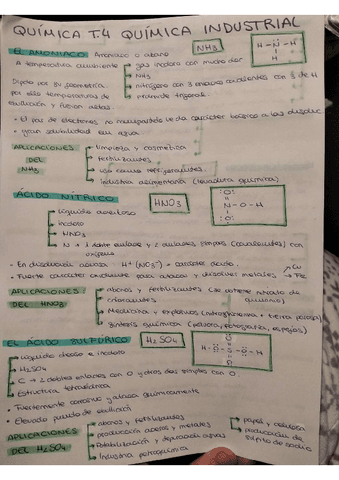 QUÍMICA T.4 QUÍMICA INDUSTRIAL
EL AMONIACO Amoniaco o abano NH3
A temperatura ambiente gas inodoro con mucho olor
NH3
H-N-H
H
Dipolo por su geometría nitrógeno con 3 enlaces covalentes con 3 de H
por ello temperaturas de pirámide trigonal.
ebullición y fusión altas.
• El par de electrones no compartido le da carácter básico a las disoluc
• gran solubilidad en agua.
APLICACIONES limpieza y cosmética
DEL fertilizantes
NH3 uso como refrigerantes.
Industria alimentaria (levadura química)
ÁCIDO NÍTRICO HNO3
:O:
N-O-H
:O:
Líquido
inodoro
HNO3
N → 1 doble enlace y 2 enlaces simples (covalentes) con
- En disolución acuosa H+ (NO3-) → carácter ácido.
- Fuerte carácter oxidante para atacar y disolver metales → Cu
Fe
APLICACIONES abonos y fertilizantes (se obtiene nitrato de
amonio)
DEL HNO3 colorantes
Medicina y explosivos (nitroglicerina + tierra porosa)
Síntesis química (pólvora, fotografía, espejos)
EL ÁCIDO SULFÚRICO H2SO4
Líquido oleoso e inodoro
H2SO4
:O:
H-O-S-O-H
:O:
C → 2 dobles enlaces con O y otros dos simples con O
Estructura tetraédrica
• Fuertemente corrosivo y ataca químicamente
• Elevado punto de ebullición
APLICACIONES abonos y fertilizantes papel y celulosa
DEL H2SO4 producción aceros y metales producción de
Potabilización y depuración aguas sulfito de sodio
Industria petroquímica